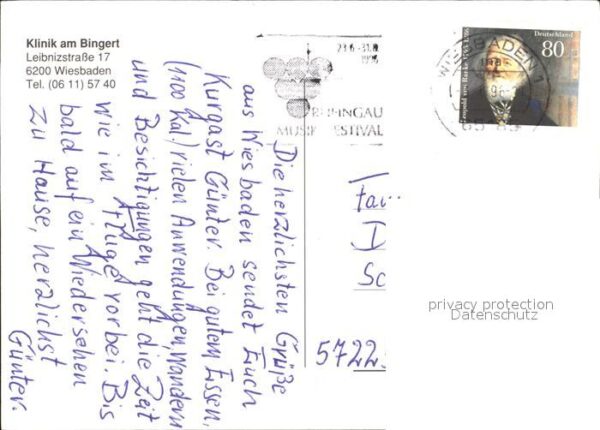 Klinik am Bingert
Leibnizstraße 17
6200 Wiesbaden
Tel. (06 11) 57 40
RHEINGAU
MUSIK FESTIVAL
WIESBADEN 1
Deutschland
80
Leopold von Ranke 1795-1886
Die herzlichsten Grüße
aus Wiesbaden sendet Euch
Kurgast Günter. Bei gutem Essen,
(1100 Kal) vielen Anwendungen, Wandern
und Besichtigungen geht die Zeit
wie im Fluge vorbei. Bis
bald auf ein Wiedersehen
zu Hause, herzlichst
Günter.
Fa
D
Sc
5722
privacy protection
Datenschutz